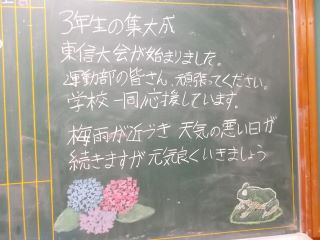 3年生の集大成
東信大会が始まりました。
運動部の皆さん、頑張ってください。
学校一同応援しています。
梅雨が近づき 天気の悪い日が
続きますが 元気良くいきましょう